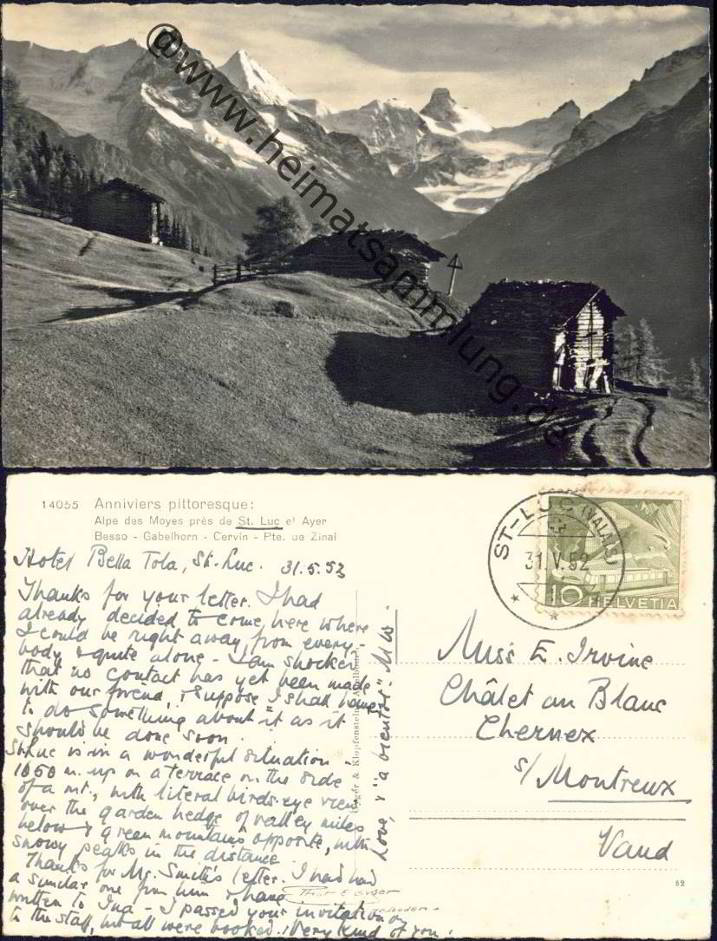 @www.heimatsammlung.de
14055 Anniviers pittoresque:
Alpe des Moyes près de St. Luc et Ayer
Besso - Gabelhorn - Cervin - Pte. de Zinal
ST-LUC (VALAIS)
31.V.52
10 HELVETIA
Hotel Bella Tola, St. Luc. 31.5.52
Thanks for your letter. I had
already decided to come here where
I could be right away from every
body & quite alone - I am shocked
that no contact has yet been made
with our friend, & suppose I shall have
to do something about it as it
should be done soon.
St. Luc is in a wonderful situation
1650 m. up on a terrace on the side
of a mt., with literal birds-eye view
over the garden hedge of valley miles
below & green mountains opposite, with
snowy peaks in the distance
Thanks for Mr. Smite's letter. I had had
a similar one from him & have
written to Ina - I passed your invitation on
to the staff, but all were booked. Very kind of you.
Love, & "à bientôt"
Miss E. Irvine
Châlet an Blanc
Chernex
s/ Montreux
Vaud
52